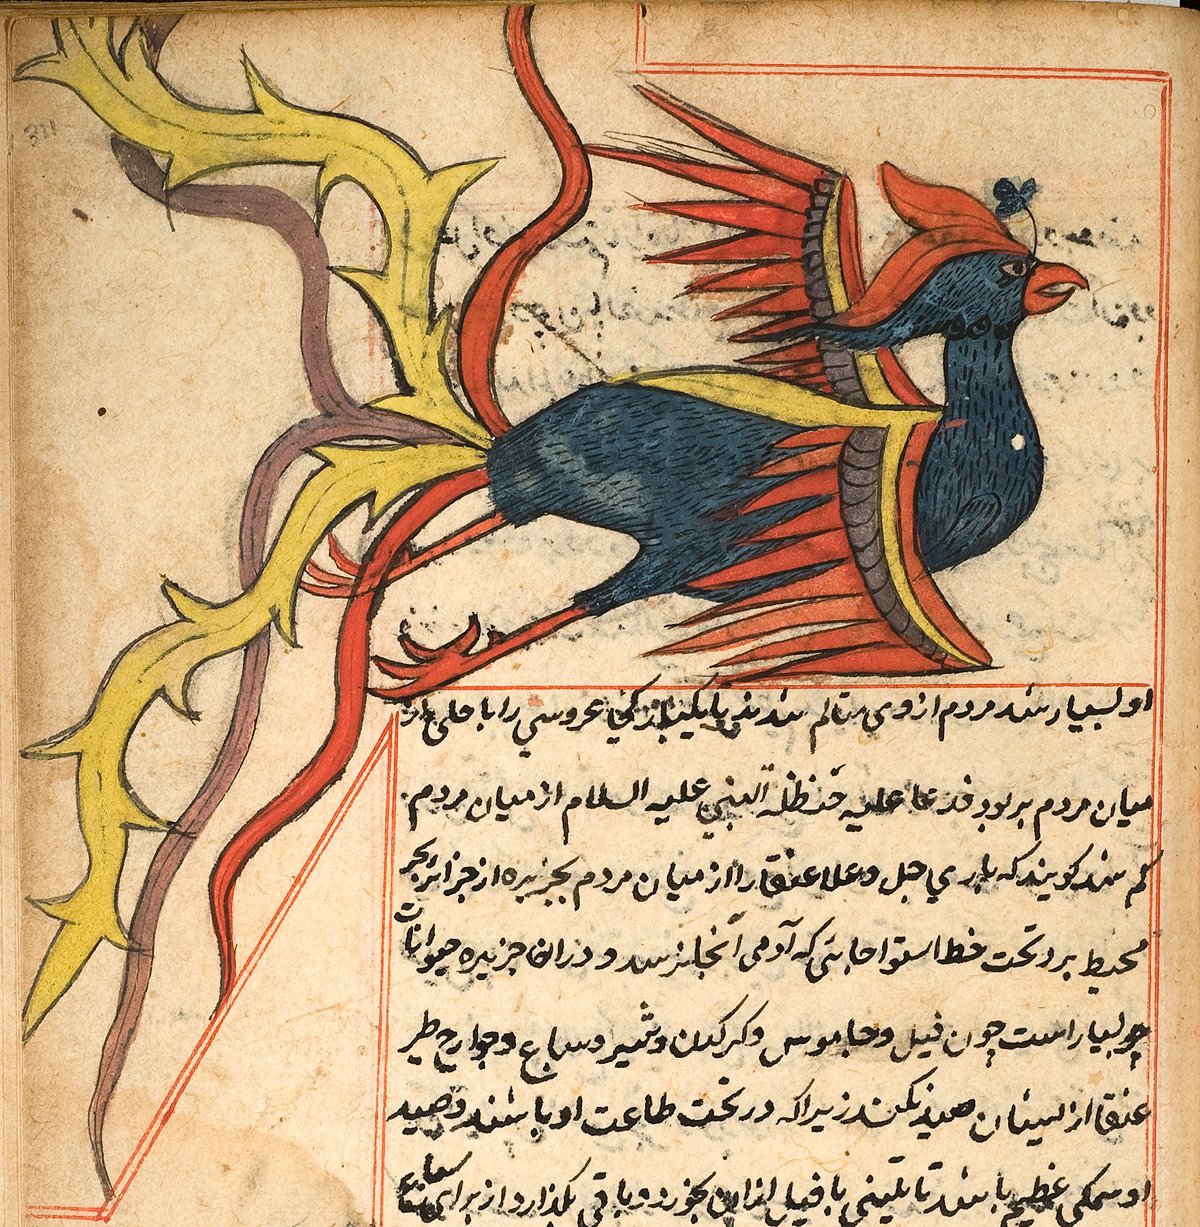 311
او بسیار شد مردم ازوی متالم شدند تا یکبار کی عروسی را با حلی از
میان مردم بربود فدعا علیه حنظلة النبی علیه السلام از میان مردم
کم شد کویند که باری جل وعلا عنقا را از میان مردم بجزیره از جزایر بحر
محیط برد تحت خط استوا جایی که آدمی آنجا نرسد و دران جزیره حیوانات
بسیار است چون فیل و جاموس و کرکدن و شیر و سباع و جوارح طیر
عنقا از ایشان صید نکند زیرا که در تحت طاعت او باشند و صید
او سمکی عظیم باشد تا تنینی یا فیل ازان بخورد و باقی بکذارد از برای سباع